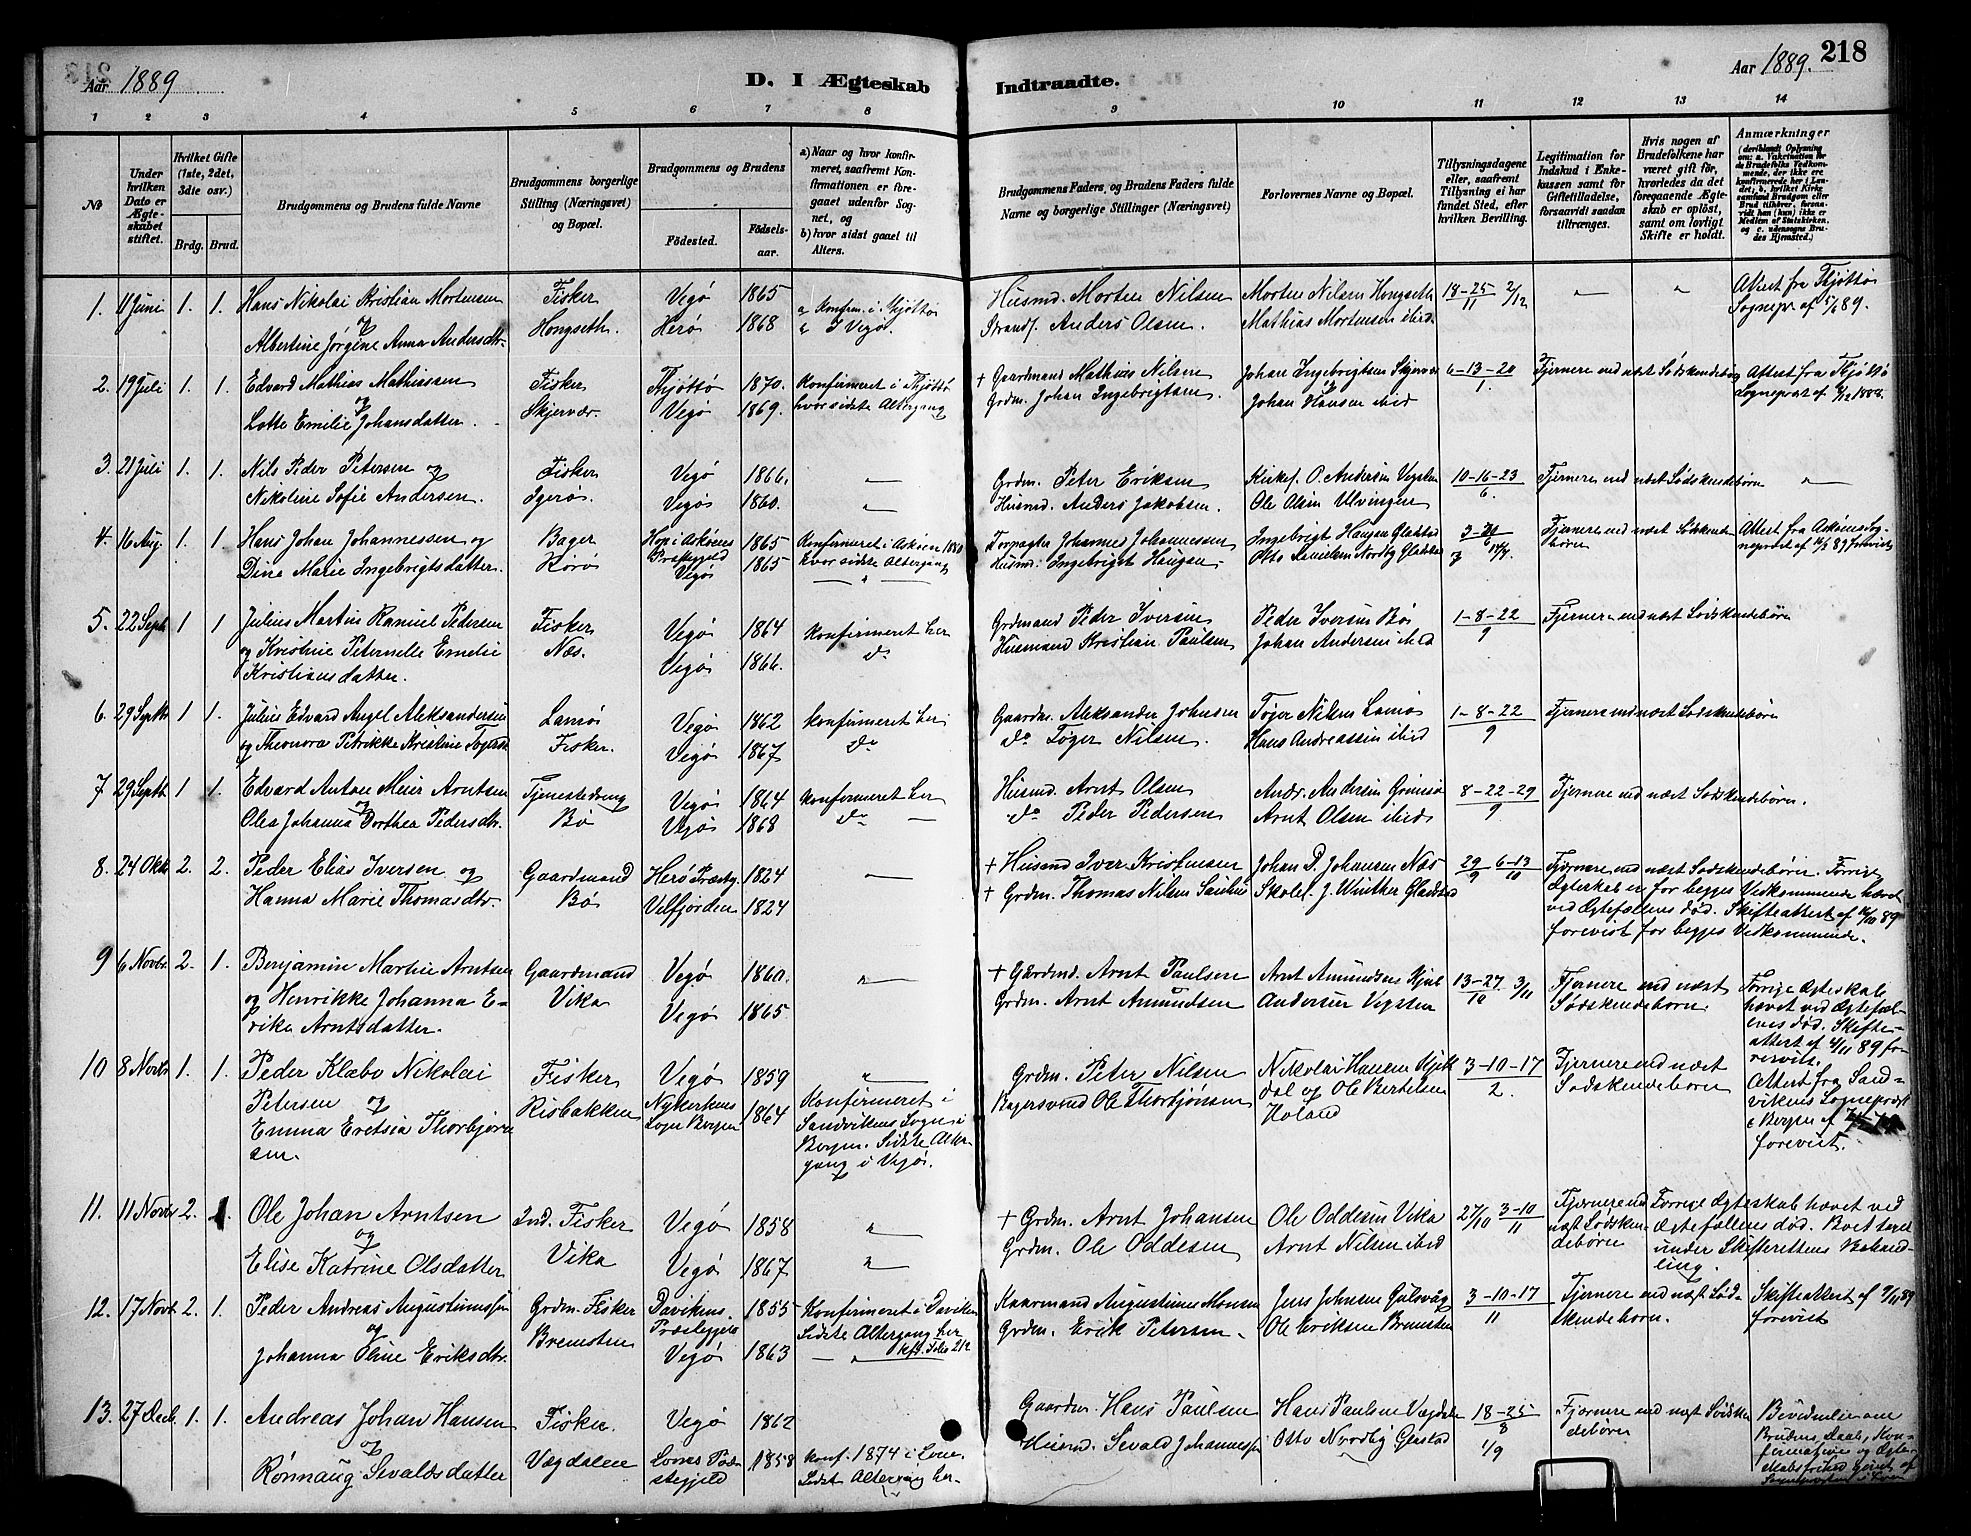 Aar 1889
D. I Ægteskab Indtraadte.
Aar 1889.
218
1 2 3 4 5 6 7 8 9 10 11 12 13 14
№
Under hvilken Dato er Ægteskabet stiftet.
Hvilket Gifte (1ste, 2det, 3die osv.)
Brdg. Brud.
Brudgommens og Brudens fulde Navne
Brudgommens borgerlige Stilling (Næringsvei) og Bopæl.
Brudgommens og Brudens
Födested.
Födselsaar.
a) Naar og hvor konfirmeret, saafremt Konfirmationen er foregaaet udenfor Sognet, og
b) hvor sidst gaaet til Alters.
Brudgommens Faders, og Brudens Faders fulde Navne og borgerlige Stillinger (Næringsvei)
Forlovernes Navne og Bopæl.
Tillysningsdagene eller, saafremt Tillysning ei har fundet Sted, efter hvilken Bevilling.
Legitimation for Indskud i Enkekassen samt for Giftetilladelse, forsaavidt saadan tiltrænges.
Hvis nogen af Brudefolkene har været gift før, hvorledes da det foregaaende Ægteskab er oplöst, samt om lovligt Skifte er holdt.
Anmærkninger (deriblandt Oplysning om: a. Vaksination for de Brudefolks Vedkommende, der ikke ere konfirmerede her i Landet; b. hvilket Kirkesamfund Brudgom eller Brud tilhörer, forsaavidt han (hun) ikke er Medlem af Statskirken, og c. udensogns Brudes Hjemsted.)
1. 11 Juni 1. 1. Hans Nikolai Kristian Mortensen
og
Albertine Jørgine Anna Andersdtr.
Fisker
Hongseth.
Vegø 1865
Herø 1868
" Konfirm. i Thjøttø
" I Vegø.
Husmd. Morten Nilsen
Strands. Anders Olsen.
Morten Nilsen Hongseth
Mathias Mortensen ibid
18-25/11 2/12
"
"
Attest fra Thjøttø
Sognepr. af 5/6 89.
2. 19 Juli 1. 1. Edvard Mathias Mathissen
og
Lotte Emilie Johansdatter.
Fisker
Skjervær.
Thjøttø 1870.
Vegø 1869.
Konfirmeret i Thjøttø
hvor sidste Altergang
+ Gaardmand Mathias Nilsen
Grdm. Johan Ingebrigtsen.
Johan Ingebrigtsen Skjervær
Johan Hansen ibid
6-13-20/1.
Fjernere end næst Sødskendebørn
Attest fra Thjøttø
Sognepræst af 1888.
3. 21 Juli 1. 1. Nils Peder Petersen og
Nikoline Sofie Andersen.
Fisker
Igerøs.
Vegø 1866.
Vegø 1860.
"
"
Grdm. Peter Eriksen
Husmd. Anders Jakobsen.
Kirkes. O. Andersen
Ole Olsen Ulvingen
10-16-23/6.
Fjernere end næst Sødskendebørn
"
4. 16 Aug. 1. 1. Hans Johan Johannessen og
Dina Marie Ingebrigtsdatter.
Bager
Rørø
Hop i Askøens Præstegjeld 1865
Vegø 1865
Konfirmeret i Askøen 1880
hvor sidste Altergang
"
Forpagter Johannes Johannessen
Husmd. Ingebrigt Haugen
Ingebrigt Haugen Gladstad
Otto Danielsen Nordby Gladstad
Fjernere end næst Sødskendebörn
Attest fra Askøens Sognepræst af 89 forevist
5. 22 Septb. 1 1 Julius Martin Ramuel Pedersen
og Kristine Peternelle Emelie
Kristiansdatter.
Fisker
Næs.
Vegø 1864
Vegø 1866.
Konfirmeret her
do
Grdmand Peder Iversen
Husmand Kristian Paulsen
Peder Iversen Bø
Johan Andersen ibid
1-8-22/9
Fjernere end næst Sødskendebørn
6. 29 Septb. 1 1. Julius Edvard Angel Aleksandersen
og Theonora Petrikke Kristine Tøgersd.
Lamø
Fisker.
Vegø 1862
Vegø 1867
Konfirmeret her
do
Gaardm. Aleksander Johnsen
do Tøger Nilsen.
Tøger Nilsen Lamø
Hans Andreassen ibid
1-8-22/9
Fjernere end næst Sødskendebørn
7 29 Septb. 1 1. Edvard Anton Meier Arntsen
og
Olea Johanna Dorthea Pedersdtr.
Tjenestedreng
Bø
Vegø 1864
Vegø 1868
Konfirmeret her
do
Husmd. Arnt Olsen
do Peder Pedersen
Andr. Andersen Grimsø
Arnt Olsen ibid
8-22-29/9
Fjernere end næst Sødskendebørn.
8. 24 Okt. 2. 2. Peder Elias Iversen og
Hanna Marie Thomasdtr.
Gaardmand
Bø
Herø Præstg. 1824
Vilfjorden 1824
"
+ Husmd Iver Kristensen
+ Grdm. Thomas Nilsen
Johan P. Johansen Næs
Skolel. J. Winther Gladstad
29/9 6-13/10
Fjernere end næst Sødskendebörn. Forrige
Ægteskab er for begges Vedkommende hævet
ved Ægtefællens død. Skifteattest af 89
forevist for begges Vedkommende.
9 6 Novbr. 2. 1. Benjamin Martin Arntsen
og Henrikke Johanna E-
rika Arntsdatter.
Gaardmand
Vika
Vegø 1860.
Vegø 1865
"
+ Gaardmd. Arnt Paulsen
Grdm. Arnt Amundsen
Arnt Amundsen
Andersen Vegsten
13-27/10 3/11
Fjernere end næst
Sødskendeborn
Forrige Ægteskab
hævet ved Ægtefæl-
lens død. Skifte-
attest af 4/11 89 fo-
revist.
10 8 Novbr. 1. 1. Peder Klæbo Nikolai
Petersen og
Emma Eretsia Thorbjørn
sen.
Fisker
Risbakken
Vegø 1859
Nykirkens Sogn Bergen 1864
"
Konfirmeret i
Sandvikens Sogn i
Bergen. Sidste Alter-
gang i Vegø.
Grdm. Peter Nilsen
Bagersvend Ole Thorbjønsen
Nikolai Hansen
dal og Ole Bertelsen
Holand
3-10-17/2.
Fjernere end næst
Sødskendeborn
Attest fra Sand-
vikens Sognepræst
i Bergen af
forevist.
11. 11 Novbr. 2. 1. Ole Johan Arntsen
og
Elise Katrine Olsdatter
Ind. Fisker
Vika
Vegø 1858
Vegø 1867
"
"
+ Grdm. Arnt Johansen
Grdm. Ole Oddesen
Ole Oddesen Vika
Arnt Nilsen ibid
27/10 3-10/11
Fjernere end
næst Sødsken
debörn
Forrige Ægteskab hævet ved
Ægtefællens død. Boet tages
under Skifterettens Behand-
ling.
12. 17 Novb. 2. 1. Peder Andreas Augustinussen
og
Johanna Oline Eriksdtr.
Grdm. Fisker
Bremsten
Davikens Præstegjeld 1855
Vegø 1863
Konfirmeret i Daviken
Sidste Altergang her
kfr. Folio 212
"
Kaarmand Augustinus Monsen
Grdm. Erik Petersen
Jens Johnsen Gulsvåg
Ole Eriksen Bremsten
3-10-17/11
Fjernere end næst Sød-
skendeborn.
Skifteattest af 9/11 89
forevist
13. 27 Decb. 1. 1. Andreas Johan Hansen
og
Rönnaug Sevaldsdatter
Fisker
Vægdalen
Vegø 1862
Loms Præstegjeld 1858
Konf. 1874 i Lom.
Sidst Altergang her
Gaardm. Hans Paulsen
Husmd. Sevald Johannessen
Hans Paulsen Vægdalen
Otto Nordby Glastad
18-25/8
1/9
Fjernere end næst Södsken
debörn
Bevidnelse om
Brudens Daab, Kon-
firmation og Ægte-